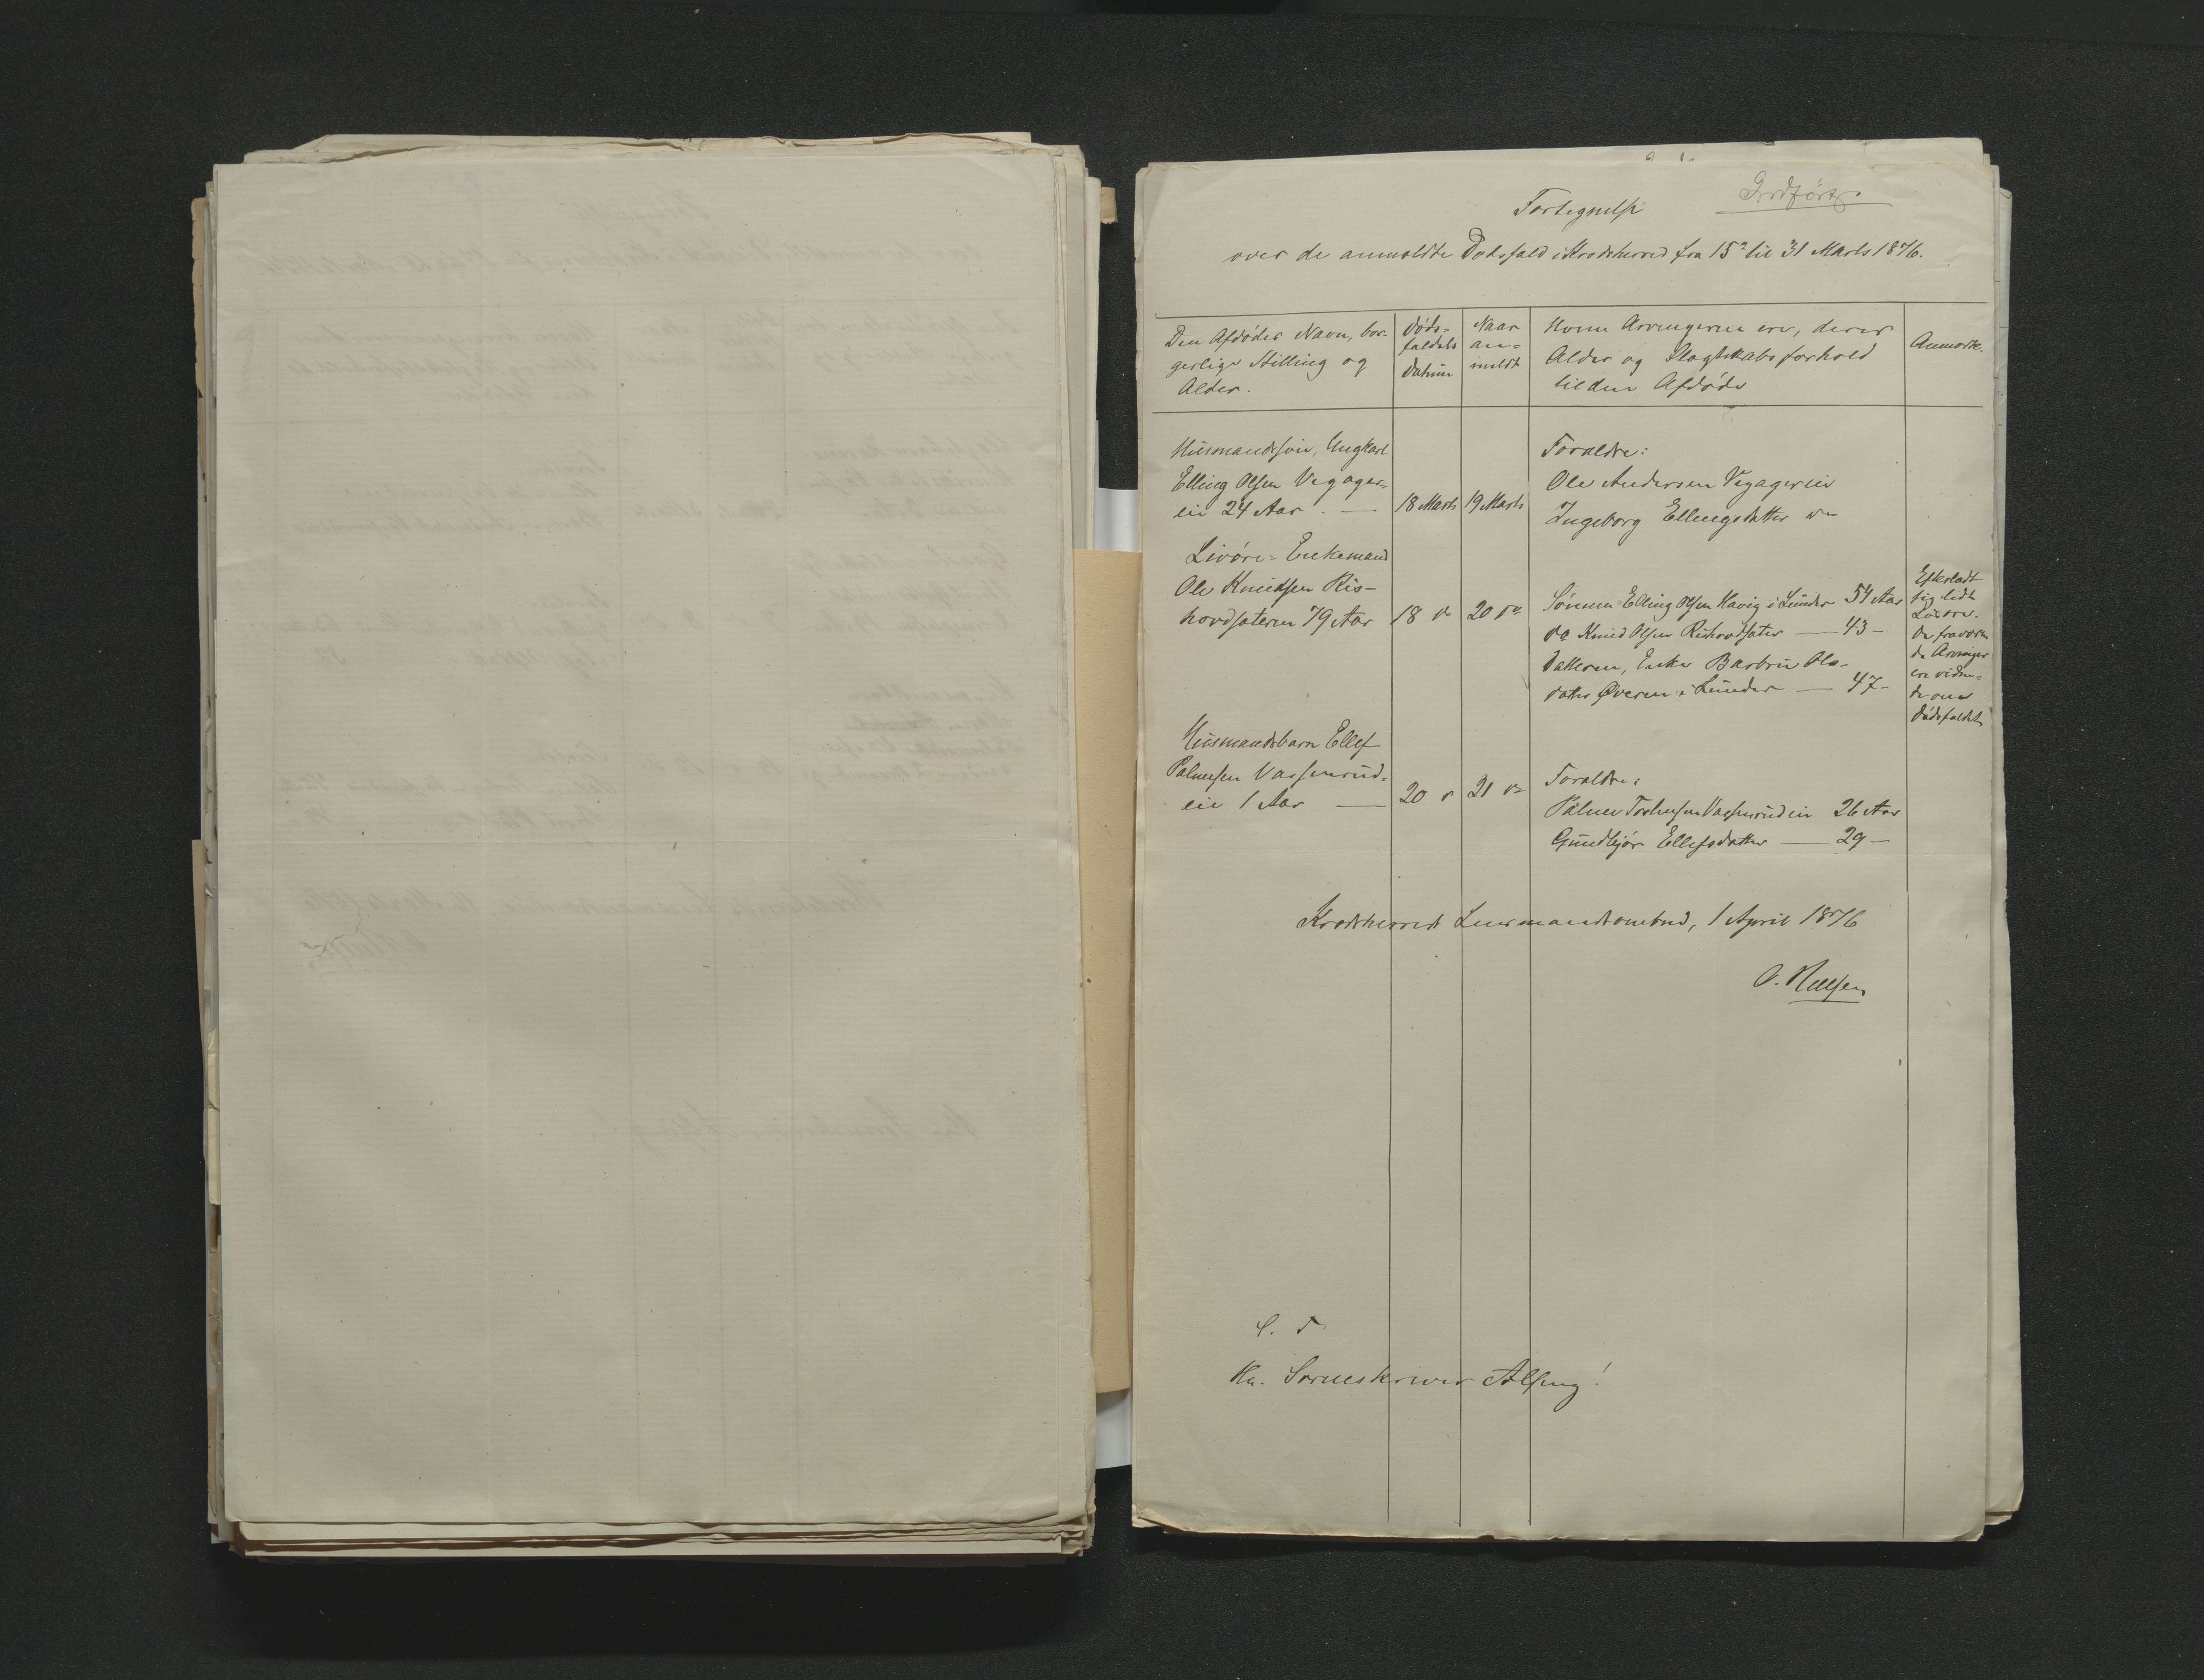 Indført
Fortegnelse
over de anmeldte Dødsfald i Krødsherred fra 15de til 31 Marts 1876.
Den Afdødes Navn, bor-
gerlige Stilling og
Alder.
Døds-
faldets
Datum
Naar
an-
meldt
Hvem Arvingerne ere, deres
Alder og Slægtskabsforhold
til den Afdøde
Anmærk.
Husmandssøn, Ungkarl
Elling Olsen Vegager-
eie 24 Aar . — 18 Marts 19 Marts
Forældre:
Ole Andersen Vegagereie
Ingeborg Ellingsdatter
Livøre-Enkemand
Ole Knudsen Ris-
hovdsæteren 79 Aar 18 do 20 do
Sønnen Elling Olsen Kavig i Lunder 54 Aar
do Knud Olsen Rishovdsæter — 43 —
Datteren, Enke Barbro Ols-
datter Øveren i Lunder — 47 —
Efterladt
sig lidt
Løsøre.
De fraværen-
de Arvinger
ere viden-
de om
Dødsfaldet
Husmandsbarn Ellef
Palmesen Vassenrud-
eie 1 Aar — 20 do 21 do
Forældre:
Palme Torstensen Vassenrudeie 26 Aar
Gundbjør Ellefsdatter — 29 —
Krødsherreds Lensmandsombud, 1 April 1876
O. Nilsen
S. T.
Hr. Sorenskriver Alsing!